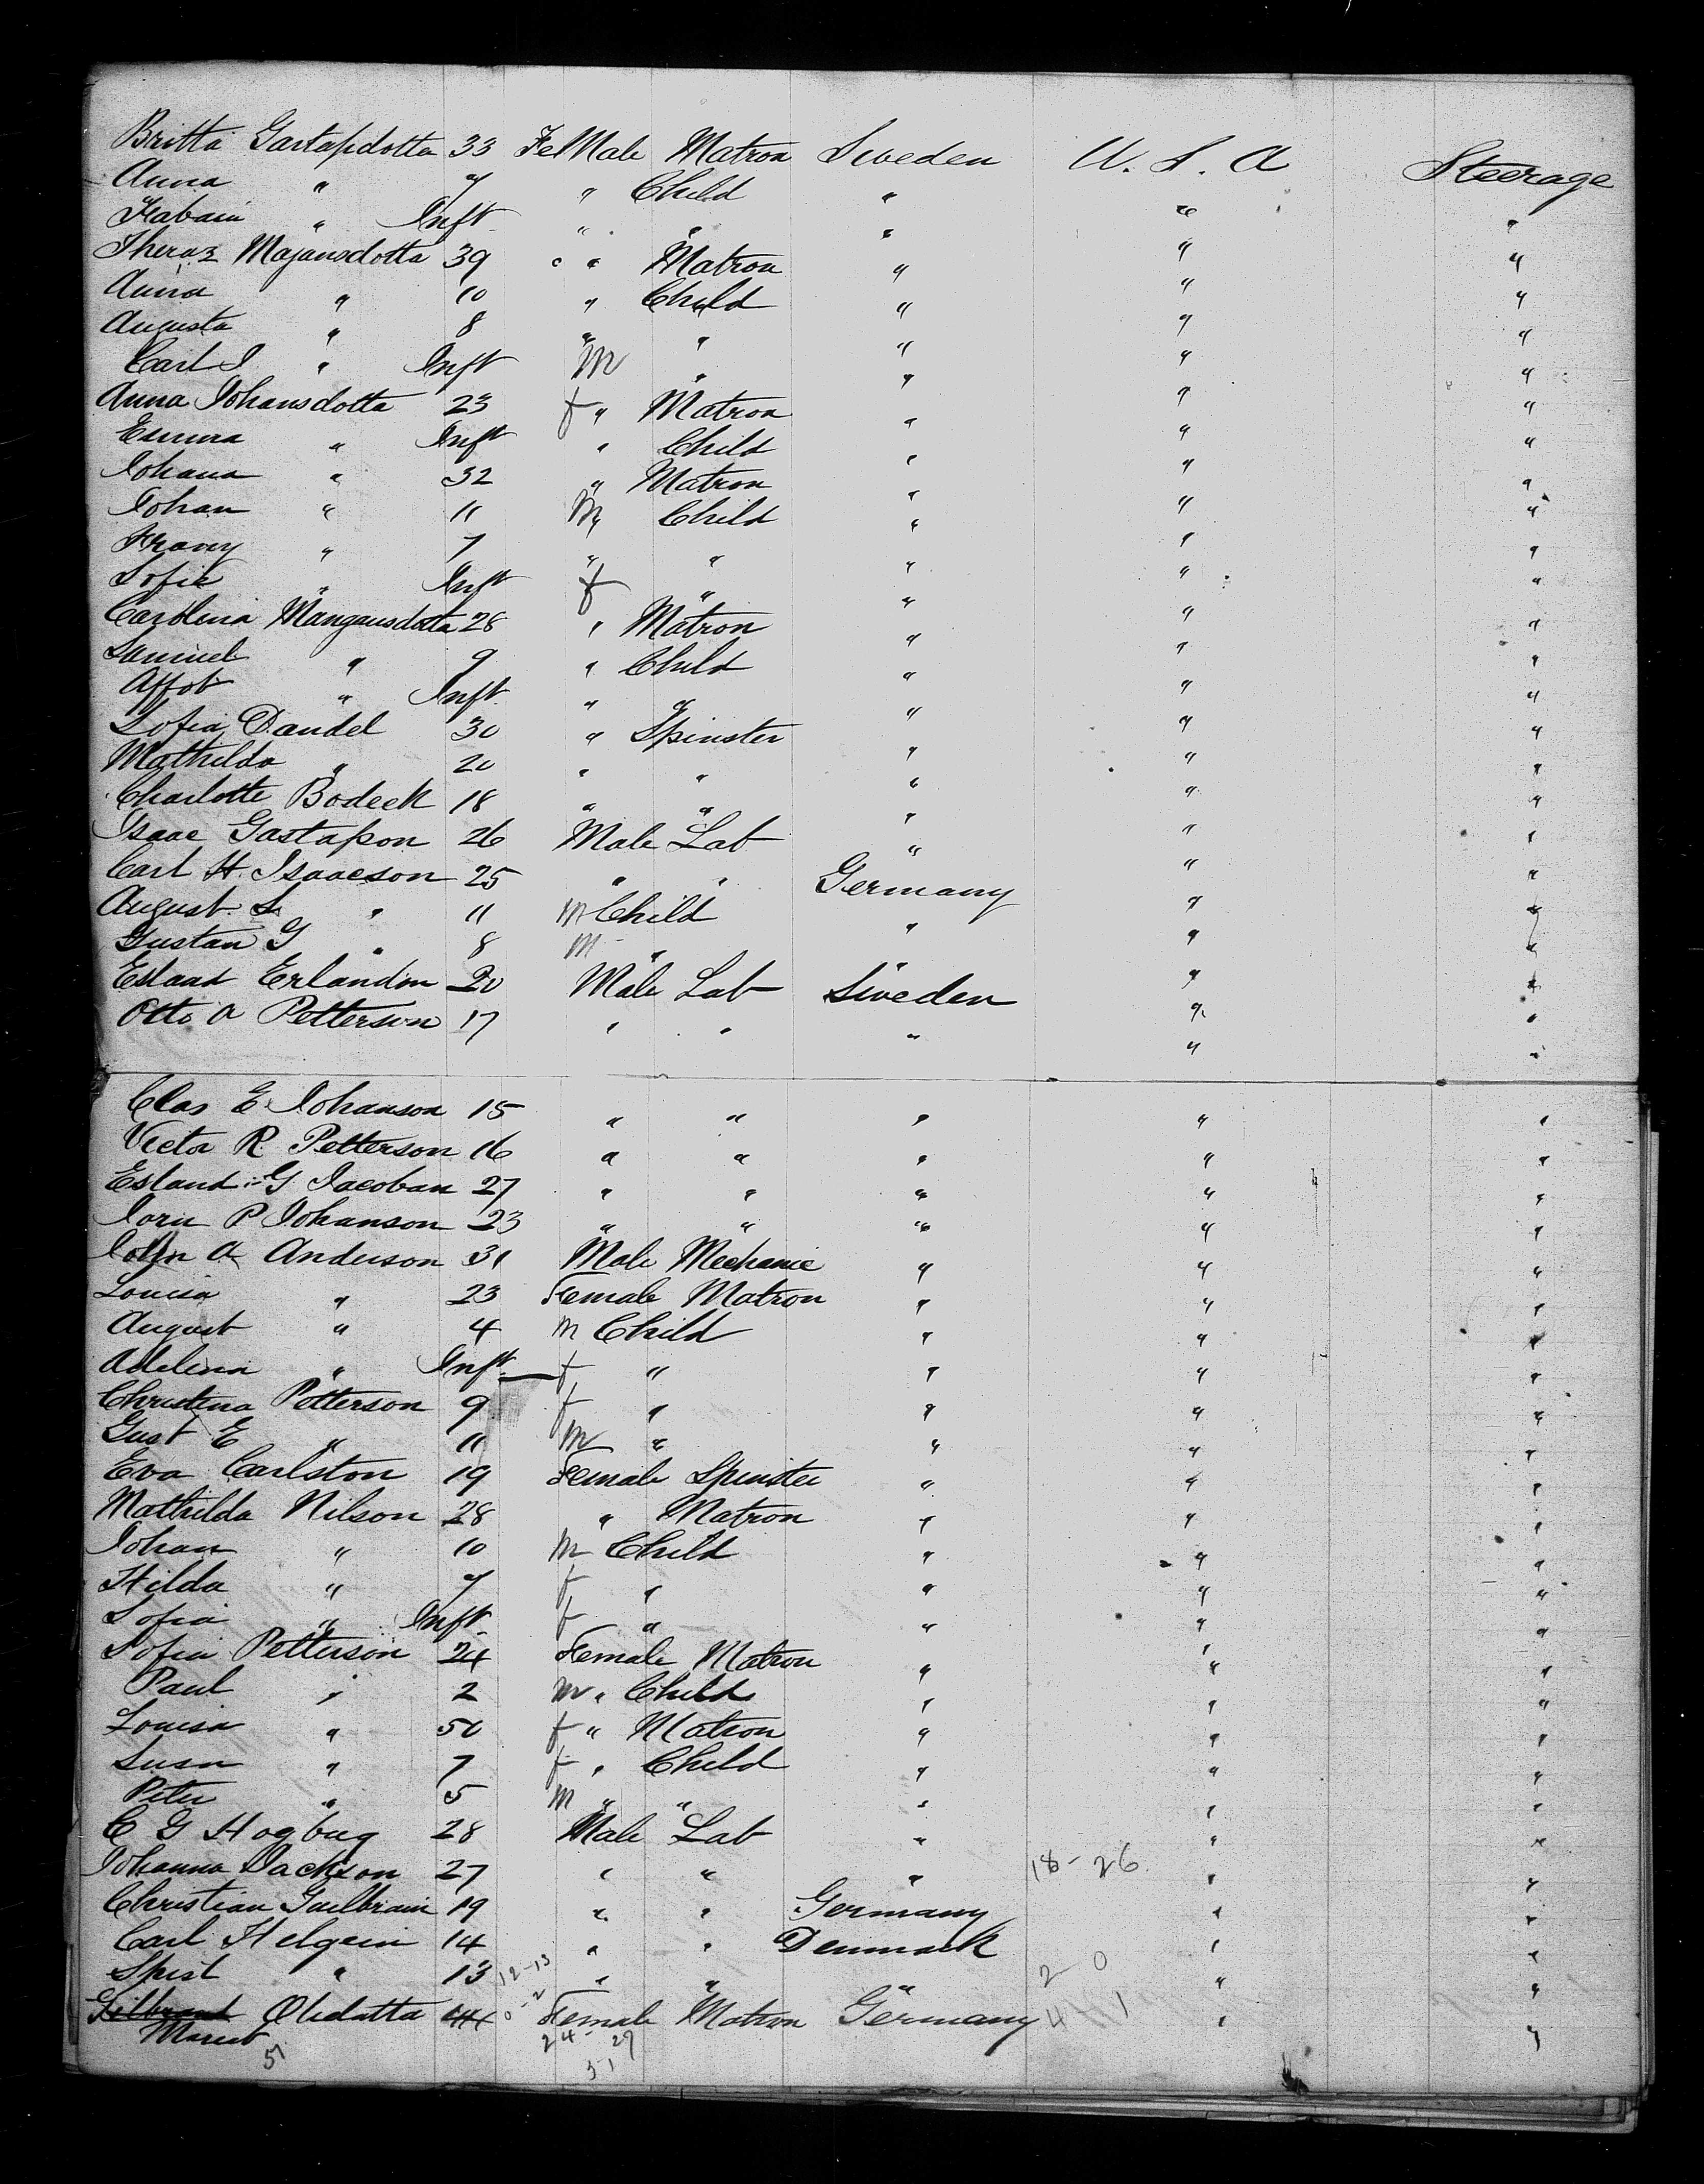 Britta Gastafsdotta 33 FeMale Matron Sweden U. S. A Steerage
Anna " 7 " Child " " "
Fabain " Inft " " " " "
Theraz Majansdotta 39 " " Matron " " "
Anna " 10 " Child " " "
Augusta " 8 " " " " "
Carl I " Inft M " " " "
Anna Johansdotta 23 f " Matron " " "
Emma " Inft " Child " " "
Johana " 32 " Matron " " "
Johan " 11 M " Child " " "
Frany " 7 " " " " "
Sofie " Inft f " " " "
Carolina Mangausdotta 28 " Matron " " "
Samuel " 9 " Child " " "
Affot " Inft " " " " "
Sofia Dandel 30 " Spinster " " "
Mathilda " 20 " " " " "
Charlotte Bodeck 18 " " " " "
Isaac Gastafson 26 Male Lab " " "
Carl H. Isaacson 25 " " Germany " "
August S. " 11 M Child " " "
Gustan G " 8 M " " " "
Eslaad Erlandson 20 Male Lab Sweden " "
Otto A Petterson 17 " " " " "
Clas E Johanson 15 " " " " "
Victa R Petterson 16 " " " " "
Esland G Jacoban 27 " " " " "
Jorn P Johanson 23 " " " " "
John A Anderson 31 Male Mechanic " " "
Louisa " 23 Female Matron " " "
August " 4 M Child " " "
Adelina " Inft f " " " "
Christena Petterson 9 f " " " "
Gust E " 11 M " " " "
Eva Carlston 19 Female Spinster " " "
Mathilda Nilson 28 " Matron " " "
Johan " 10 M Child " " "
Hilda " 7 f " " " "
Sofia " Inft f " " " "
Sofia Petterson 24 Female Matron " " "
Paul " 2 M " Child " " "
Louisa " 50 f " Matron " " "
Susn " 7 f " Child " " "
Peter " 5 M " " " " "
C G Hogbug 28 Male Lab " " "
Johanna Jackson 27 " " " 18-26 " "
Christian Guilbrain 19 " " Germany " "
Carl Helgein 14 " " Denmark " "
Spist " 13 12-13 " " " 2 0 " "
Gilbrand Oledatta 44 0-2 Female Matron Germany 4 1 " "
Marist
51 24-27
51